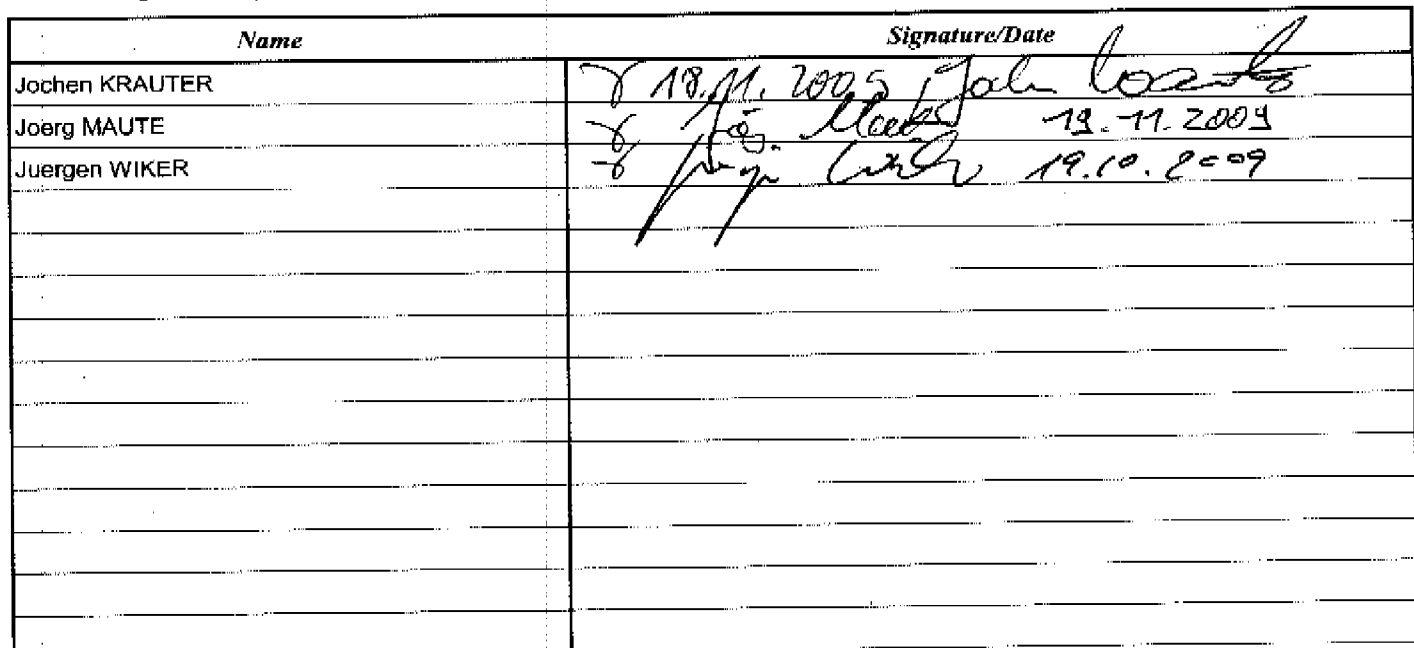 Name Signature/Date
Jochen KRAUTER 18.11.2009
Joerg MAUTE 19.11.2009
Juergen WIKER 19.10.2009